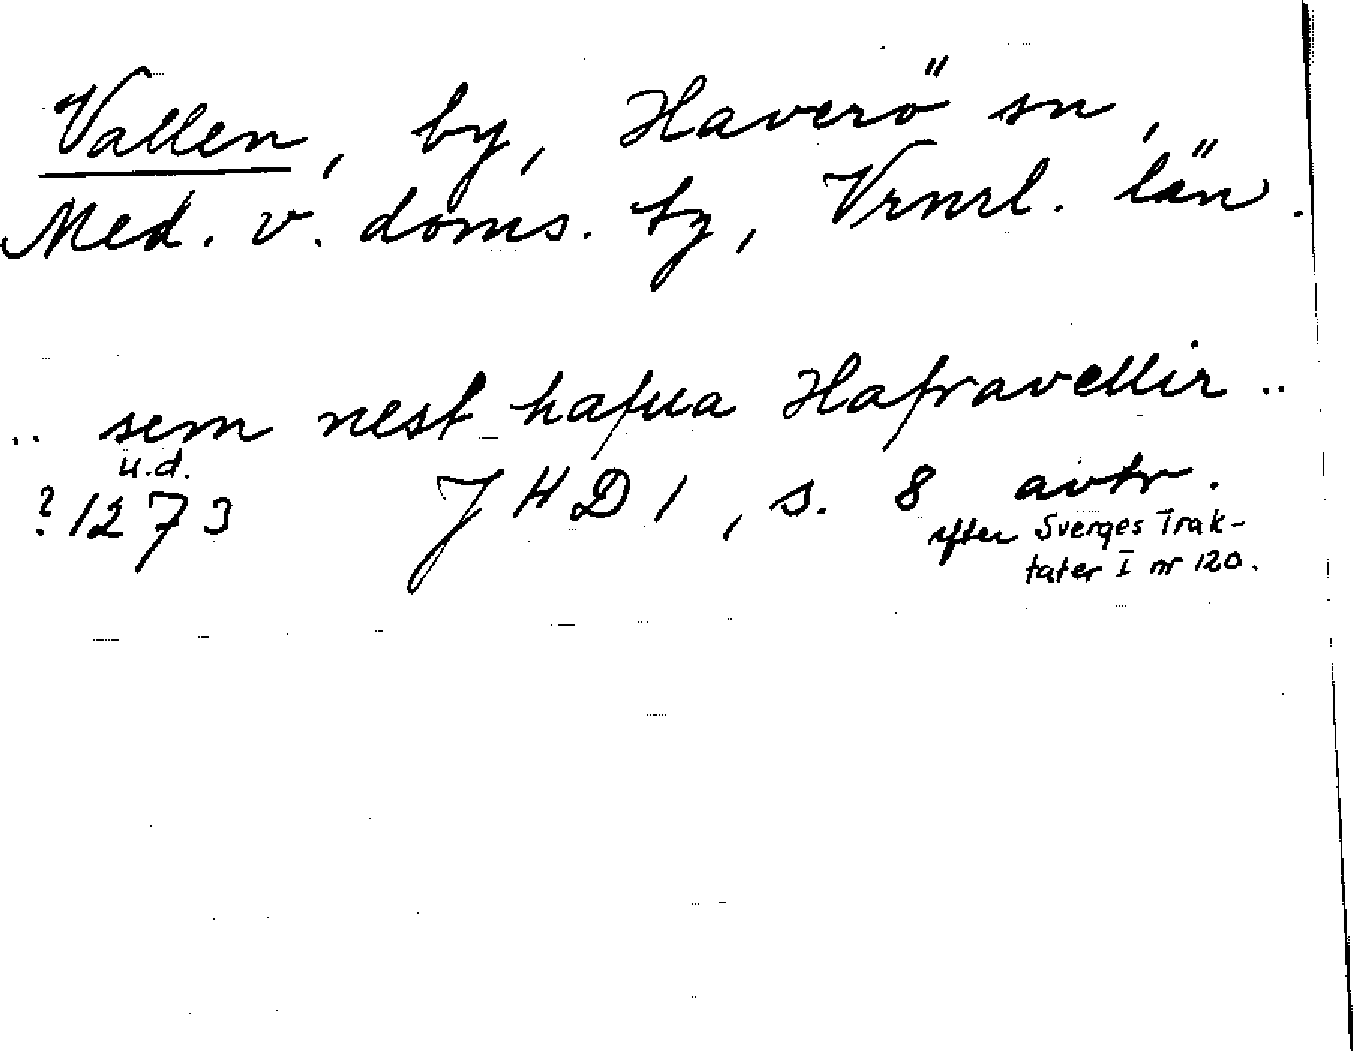 Vallen, by, Haverö sn,
Med. v. doms. tg, Vrnrl. län.
.. sem nest hafua Hafravellir ..
u.d.
?1273 JHD 1, s. 8 avtr.
efter Sverges Trak-
tater I nr 120.